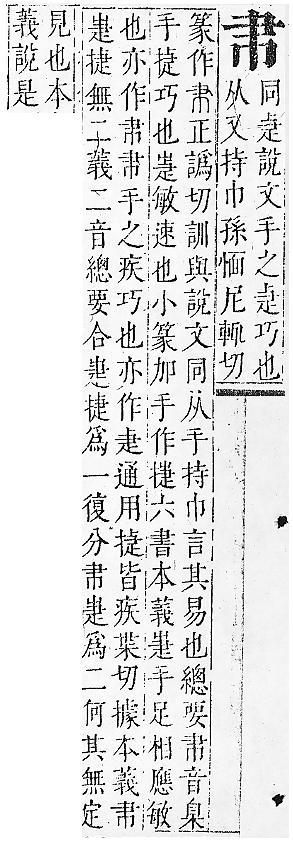 𦘒
同疌說文手之疌巧也
从又持巾孫愐尼輒切
篆作𦘒正譌切訓與說文同从手持巾言其易也總要𦘒音臬
手捷巧也疌敏速也小篆加手作捷六書本義疌手足相應敏
也亦作𦘒𦘒手之疾巧也亦作疌通用捷皆疾葉切據本義𦘒
疌捷無二義二音總要合疌捷爲一復分𦘒疌爲二何其無定
見也本
義說是